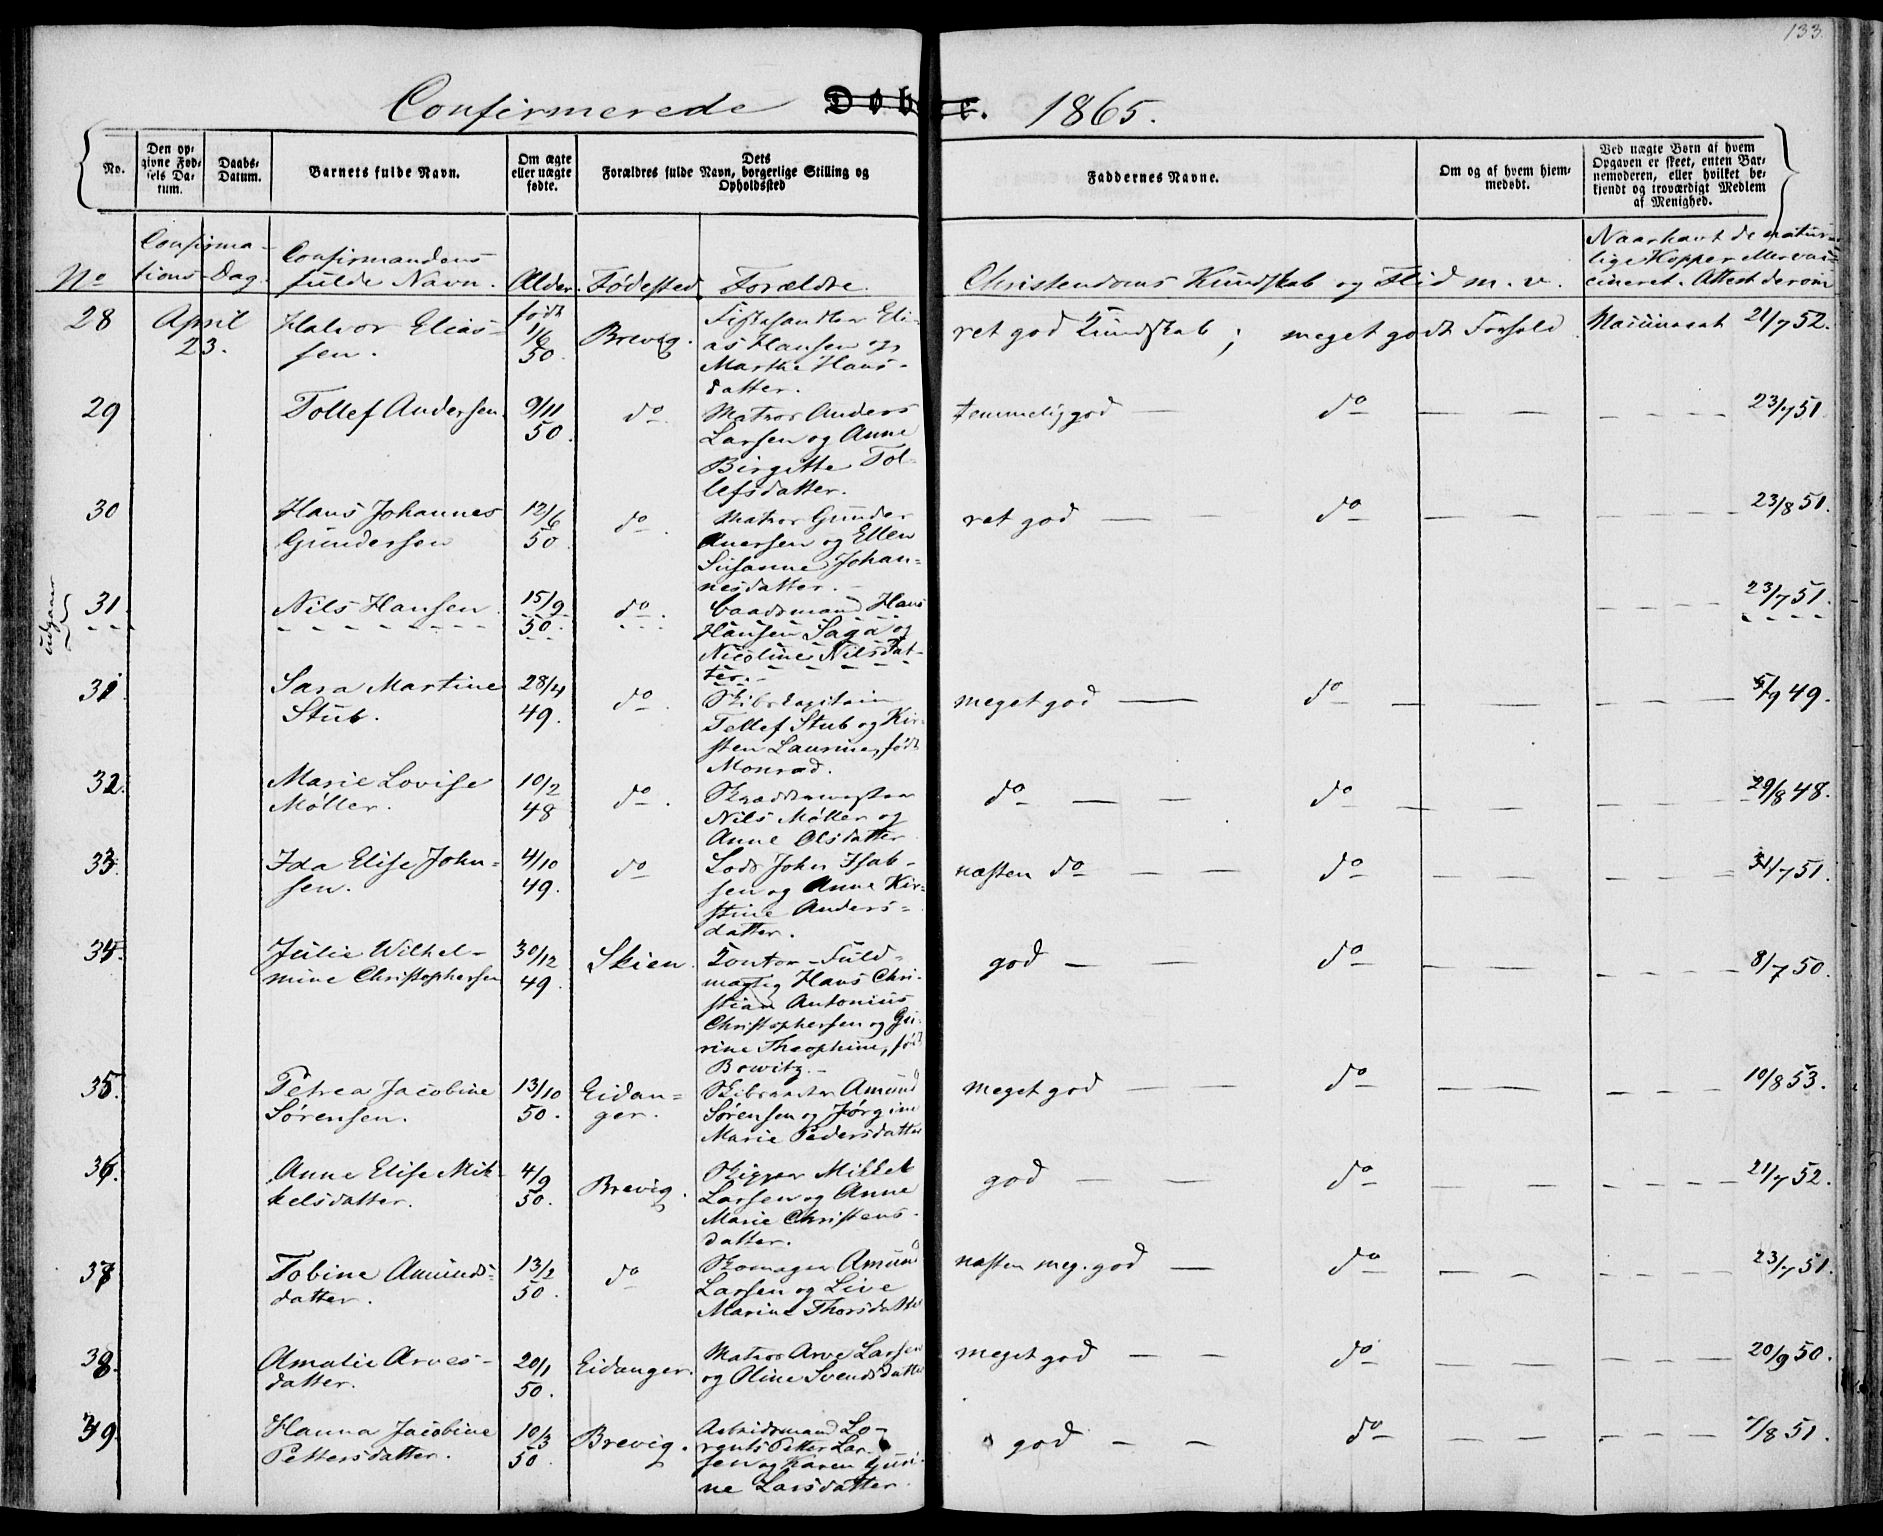 133.
Confirmerede Døbte. 1865.
No.
Den op-
givne Fød-
sels Da-
tum.
Daabs-
Datum.
Barnets fulde Navn.
Om ægte
eller uægte
fødte.
Dets
Forældres fulde Navn, borgerlige Stilling og
Opholdssted
Faddernes Navne.
Om og af hvem hjem-
medøbt.
Ved uægte Børn af hvem
Opgaven er skeet, enten Bar-
nemoderen, eller hvilket be-
kjendt og troværdigt Medlem
af Menighed.
No
Confirma-
tions-Dag
Confirmandens
fulde Navn.
Alder.
Fødested
Forældre.
Christendoms Kundskab og Flid m. v.
Naar havt de natur-
lige Kopper eller vac-
cineret. Attest derom
28
April
23.
Halvor Elias-
sen.
født
1/6
50.
Brevig.
Eli-
as Hansen og
Marthe Hans-
datter.
ret god Kundskab; meget godt Forhold
Vaccinerat 21/7 52.
29
Tollef Andersen.
9/11
50.
do
Matros Anders
Larsen og Anne
Birgitte Tol-
lefsdatter.
temmelig god — do — —
23/7 51
30
Hans Johannes
Gundersen
12/6
50
do.
Matros Gunder
Aversen og Ellen
Susanne Johan-
nesdatter.
ret god — — do — —
23/8 51.
udgaaer
31.
Nils Hansen
15/9
50.
do.
Baadsmand Hans
Hansen Saga og
Nicoline Nilsdat-
ter.
23/7 51.
31.
Sara Martine
Stub.
28/4
49.
do.
Skibskapitain
Tellef Stub og Kir-
sten Laurine, født
Monrad.
meget god — do — —
5/9 49.
32.
Marie Lovise
Møller.
10/2
48
do.
Skræddermester
Nils Møller og
Anne Olsdatter
do — — do — —
29/8 48.
33.
Ida Elise John-
sen.
4/10
49.
do
Lods John Isak-
sen og Anne Kir-
stine Anders-
datter.
næsten do — — do — —
31/7 51.
34.
Julie Wilhel-
mine Christophersen
30/12
49.
Skien.
Kontor-Fuld-
mægtig Hans Chri-
stian Antonius
Christophersen og Gu-
rine Theophine, født
Bowitz.
god — — do — —
8/7 50.
35.
Petrea Jacobine
Sørensen.
13/10
50.
Eidan-
ger.
Amund
Sørensen og Jørgine
Marie Pedersdatter
meget god — — do — —
10/8 53.
36.
Anne Elise Mik-
kelsdatter.
4/9
50.
Brevig.
Skipper Mikkel
Larsen og Anne
Marie Christens-
datter.
god — — do — —
21/7 52.
37
Tobine Amunds-
datter.
13/2
50.
do
Skomager Amund
Larsen og Live
Marine Thorsdatter
næsten meg. god — do — —
23/7 51.
38.
Amalie Arves-
datter.
20/1
50.
Eidanger.
Matros Arve Larsen
og Oline Svendsdatter
meget god — — do — —
20/9 50.
39.
Hanna Jacobine
Pettersdatter.
10/3
50.
Brevig.
Arbeidsmand Lo-
rents Petter Lar-
sen og Karen Guri-
ne Larsdatter
god — — do — —
7/8 51.